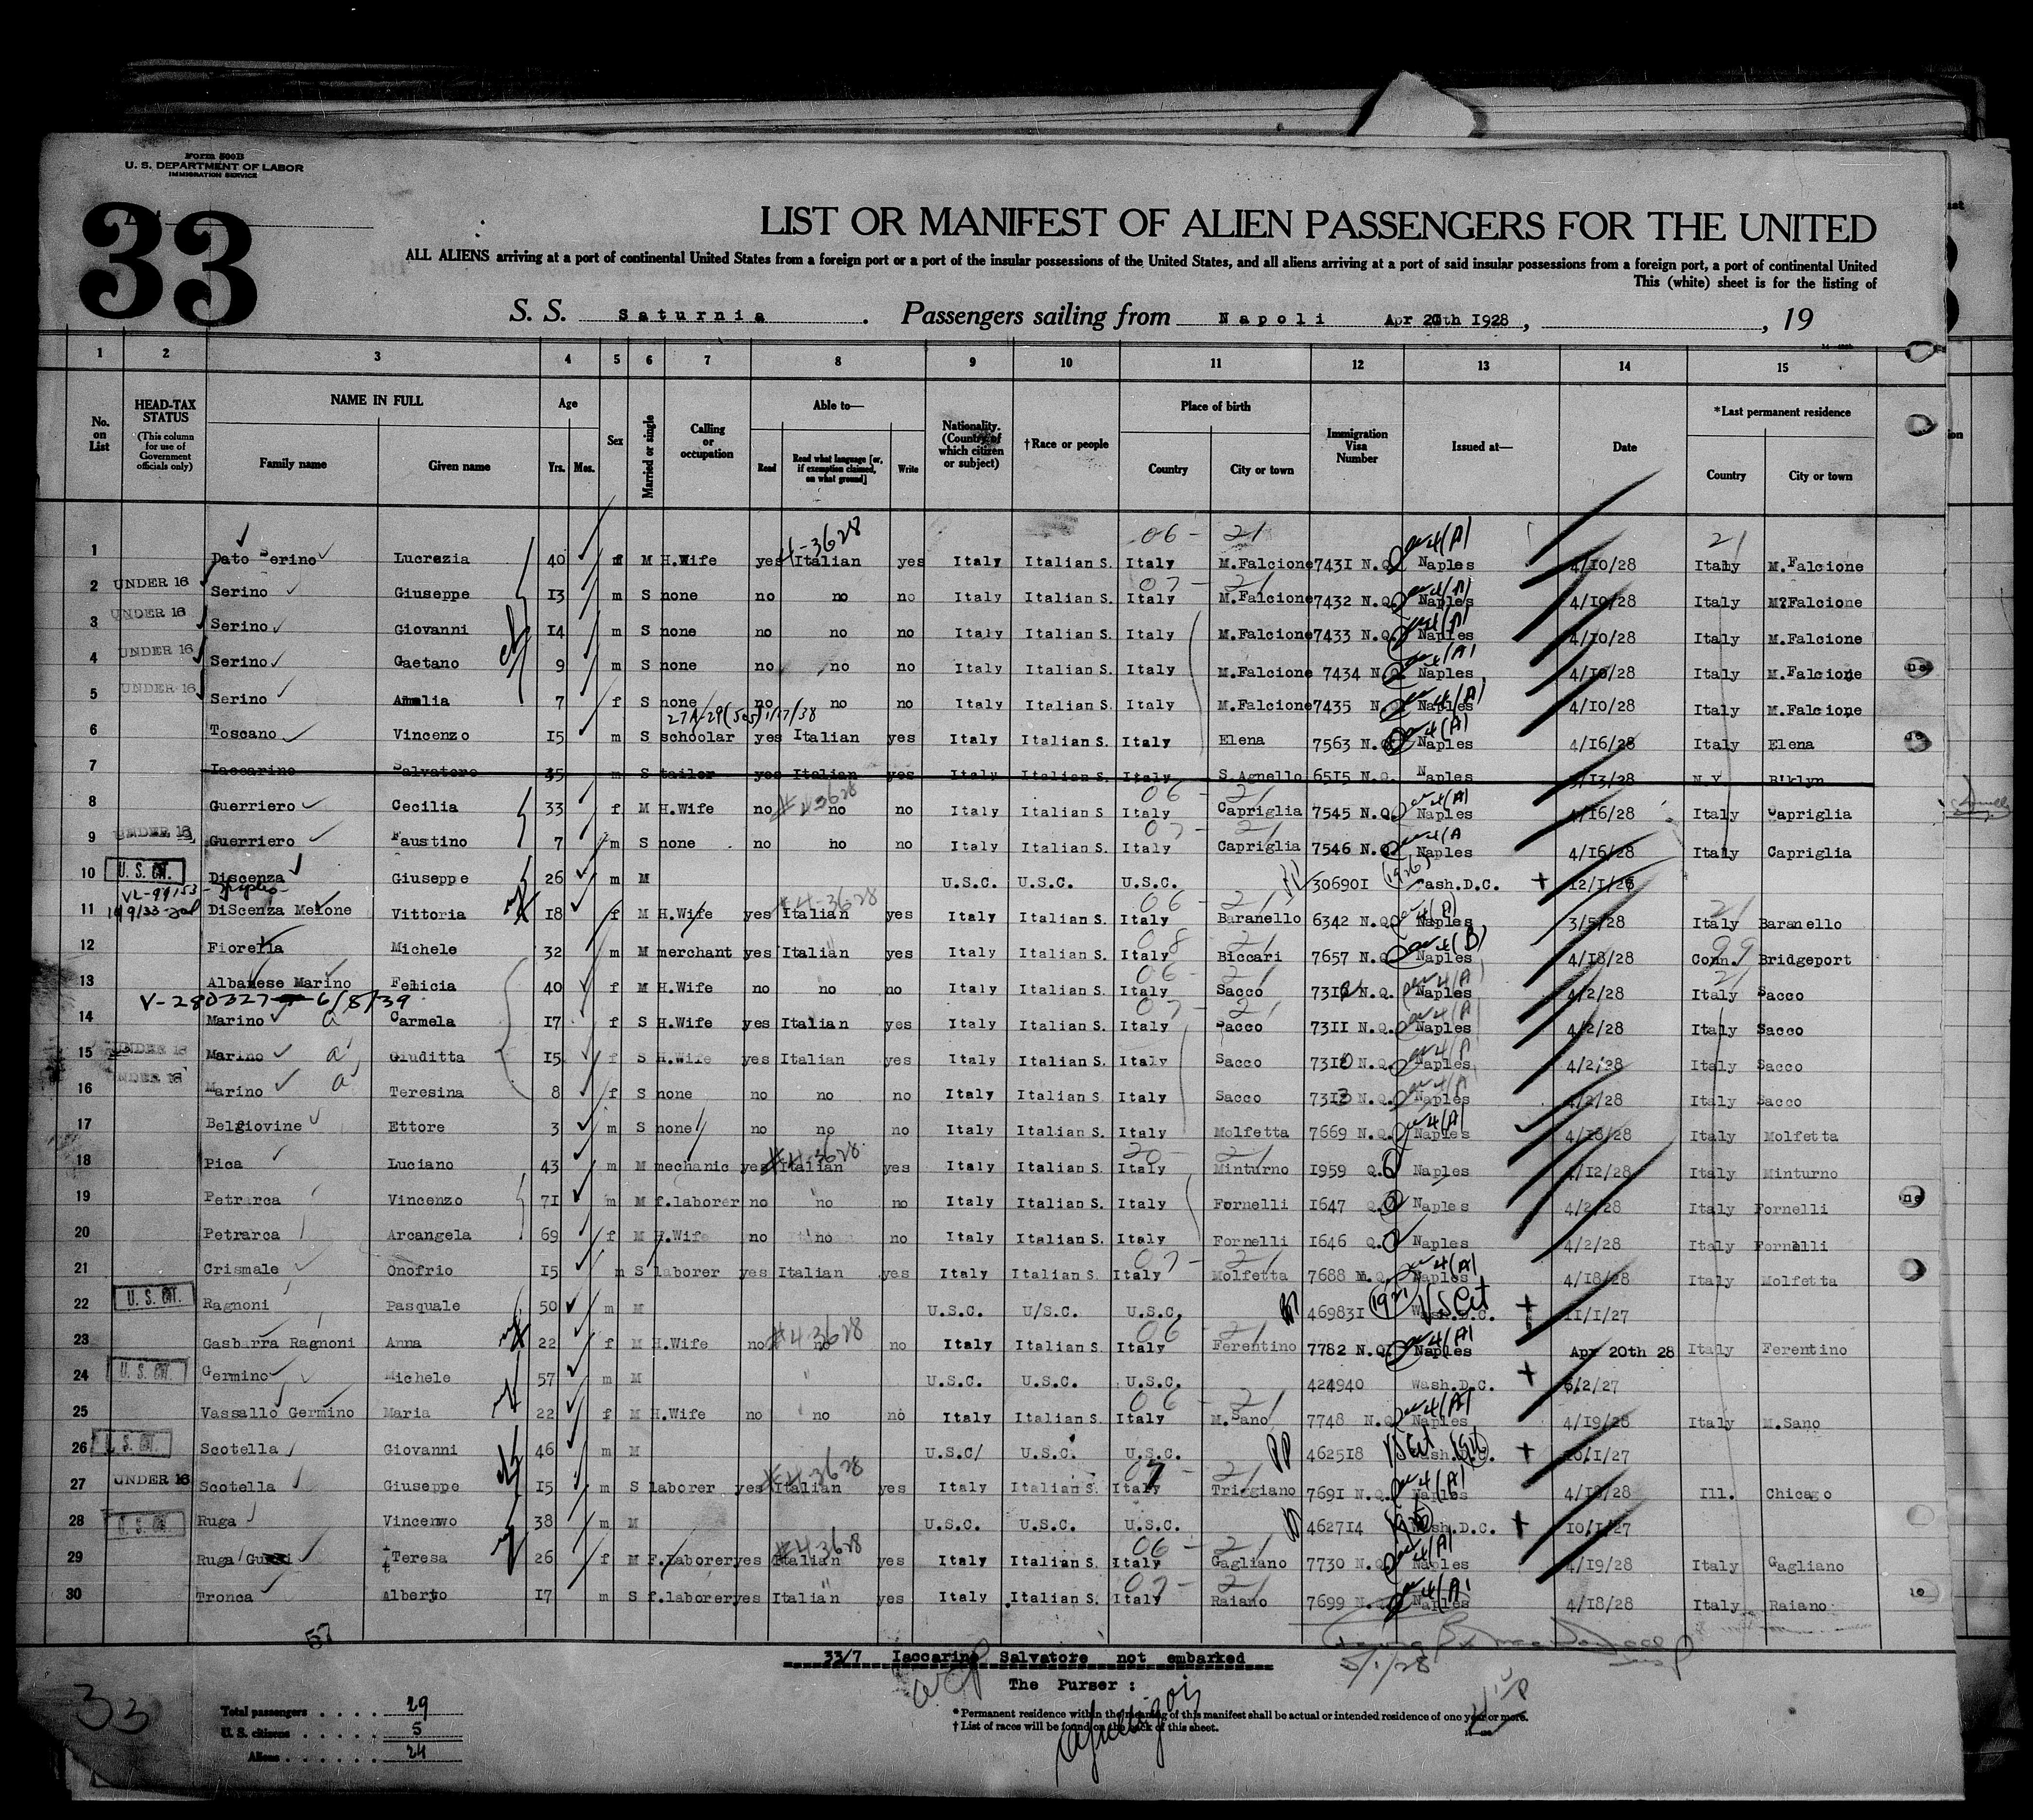 Form 500B
U. S. DEPARTMENT OF LABOR
IMMIGRATION SERVICE
33
LIST OR MANIFEST OF ALIEN PASSENGERS FOR THE UNITED
ALL ALIENS arriving at a port of continental United States from a foreign port or a port of the insular possessions of the United States, and all aliens arriving at a port of said insular possessions from a foreign port, a port of continental United
This (white) sheet is for the listing of
S. S. Saturnia. Passengers sailing from Napoli Apr 20th 1928, , 19
1 2 3 4 5 6 7 8 9 10 11 12 13 14 15
No. on List HEAD-TAX STATUS (This column for use of Government officials only) NAME IN FULL Family name Given name Age Yrs. Mos. Sex Married or single Calling or occupation Able to— Read Read what language [or, if exemption claimed, on what ground] Write Nationality. (Country of which citizen or subject) †Race or people Place of birth Country City or town Immigration Visa Number Issued at— Date *Last permanent residence Country City or town
4-3628 06 - 21 21
1 Dato Serino Lucrezia 40 f M H.Wife yes Italian yes Italy Italian S. Italy M.Falcione 7431 N.Q. Naples 4/10/28 Italy M.Falcione
07 - 21
2 UNDER 16 Serino Giuseppe 13 m S none no no no Italy Italian S. Italy M.Falcione 7432 N.Q. Naples 4/10/28 Italy M?Falcione
3 UNDER 16 Serino Giovanni 14 m S none no no no Italy Italian S. Italy M.Falcione 7433 N.Q. Naples 4/10/28 Italy M.Falcione
4 UNDER 16 Serino Gaetano 9 m S none no no no Italy Italian S. Italy M.Falcione 7434 N.Q. Naples 4/10/28 Italy M.Falcione
5 UNDER 16 Serino Amalia 7 f S none no no no Italy Italian S. Italy M.Falcione 7435 N.Q. Naples 4/10/28 Italy M.Falcione
6 Toscano Vincenzo 15 m S schoolar yes Italian yes Italy Italian S. Italy Elena 7563 N.Q. Naples 4/16/28 Italy Elena
7 Iaccarino Salvatore 35 m S tailor yes Italian yes Italy Italian S. Italy S.Agnello 6515 N.Q. Naples 3/13/28 N.Y. B'klyn
#4-3628 06 - 21
8 Guerriero Cecilia 33 f M H.Wife no no no Italy Italian S. Italy Capriglia 7545 N.Q. Naples 4/16/28 Italy Capriglia
07 - 21
9 UNDER 16 Guerriero Faustino 7 m S none no no no Italy Italian S. Italy Capriglia 7546 N.Q. Naples 4/16/28 Italy Capriglia
10 U. S. CIT. Discenza Giuseppe 26 m M U.S.C. U.S.C. U.S.C. 306901 Wash.D.C. 12/1/26
#4-3628 06 - 21 21
11 DiScenza Melone Vittoria 18 f M H.Wife yes Italian yes Italy Italian S. Italy Baranello 6342 N.Q. Naples 3/5/28 Italy Baranello
08 - 21 99
12 Fiorella Michele 32 m M merchant yes Italian yes Italy Italian S. Italy Biccari 7657 N.Q. Naples 4/18/28 Conn. Bridgeport
06 - 21 21
13 Albanese Marino Felicia 40 f M H.Wife no no no Italy Italian S. Italy Sacco 7312 N.Q. Naples 4/2/28 Italy Sacco
V-280327 6/8/39 07 - 21
14 Marino Carmela 17 f S H.Wife yes Italian yes Italy Italian S. Italy Sacco 7311 N.Q. Naples 4/2/28 Italy Sacco
15 UNDER 16 Marino Giuditta 15 f S H.Wife yes Italian yes Italy Italian S. Italy Sacco 7310 N.Q. Naples 4/2/28 Italy Sacco
16 UNDER 16 Marino Teresina 8 f S none no no no Italy Italian S. Italy Sacco 7313 N.Q. Naples 4/2/28 Italy Sacco
17 Belgiovine Ettore 3 m S none no no no Italy Italian S. Italy Molfetta 7669 N.Q. Naples 4/18/28 Italy Molfetta
#4-3628 20 - 21
18 Pica Luciano 43 m M mechanic yes Italian yes Italy Italian S. Italy Minturno 1959 Q. Naples 4/12/28 Italy Minturno
19 Petrarca Vincenzo 71 m M f.laborer no no no Italy Italian S. Italy Fornelli 1647 Q. Naples 4/2/28 Italy Fornelli
20 Petrarca Arcangela 69 f M H.Wife no no no Italy Italian S. Italy Fornelli 1646 Q. Naples 4/2/28 Italy Fornelli
07 - 21
21 Crismale Onofrio 15 m S laborer yes Italian yes Italy Italian S. Italy Molfetta 7688 N.Q. Naples 4/18/28 Italy Molfetta
22 U. S. CIT. Ragnoni Pasquale 50 m M U.S.C. U/S.C. U.S.C. 469831 Wash.D.C. 11/1/27
#4-3628 06 - 21
23 Gasbarra Ragnoni Anna 22 f M H.Wife no no no Italy Italian S. Italy Ferentino 7782 N.Q. Naples Apr 20th 28 Italy Ferentino
24 U. S. CIT. Germino Michele 57 m M U.S.C. U.S.C. U.S.C. 424940 Wash.D.C. 6/2/27
06 - 21
25 Vassallo Germino Maria 22 f M H.Wife no no no Italy Italian S. Italy M.Sano 7748 N.Q. Naples 4/19/28 Italy M.Sano
26 U. S. CIT. Scotella Giovanni 46 m M U.S.C/ U.S.C. U.S.C. 462518 Wash.D.C. 10/1/27
#4-3628 07 - 21
27 UNDER 16 Scotella Giuseppe 15 m S laborer yes Italian yes Italy Italian S. Italy Triggiano 7691 N.Q. Naples 4/18/28 Ill. Chicago
28 U. S. CIT. Ruga Vincenwo 38 m M U.S.C. U.S.C. U.S.C. 462714 Wash.D.C. 10/1/27
#4-3628 06 - 21
29 Ruga Teresa 26 f M F.laborer yes Italian yes Italy Italian S. Italy Gagliano 7730 N.Q. Naples 4/19/28 Italy Gagliano
07 - 21
30 Tronca Alberto 17 m S f.laborer yes Italian yes Italy Italian S. Italy Raiano 7699 N.Q. Naples 4/18/28 Italy Raiano
57
33/7 Iaccarino Salvatore not embarked
5/1/28
The Purser :
33
Total passengers . . . . 29
U. S. citizens . . . . . 5
Aliens . . . . . . 24
* Permanent residence within the meaning of this manifest shall be actual or intended residence of one year or more.
† List of races will be found on the back of this sheet.